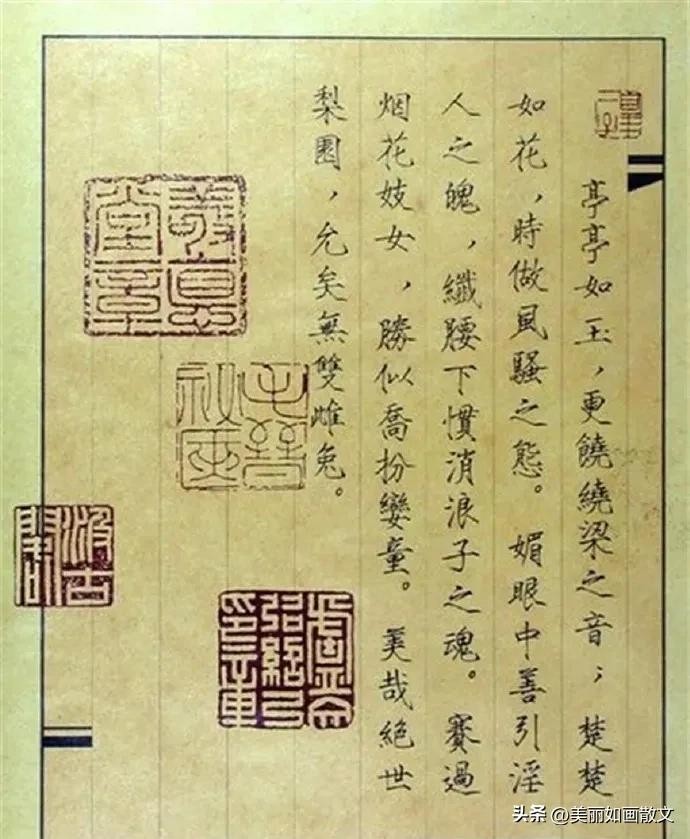 亭亭如玉，更饒繞梁之音；楚楚
如花，時做風騷之態。媚眼中善引淫
人之魄，纖腰下慣消浪子之魂。賽過
烟花妓女，勝似喬扮孌童。美哉絕世
梨園，允矣無雙雌兔。
頭条 @美丽如画散文